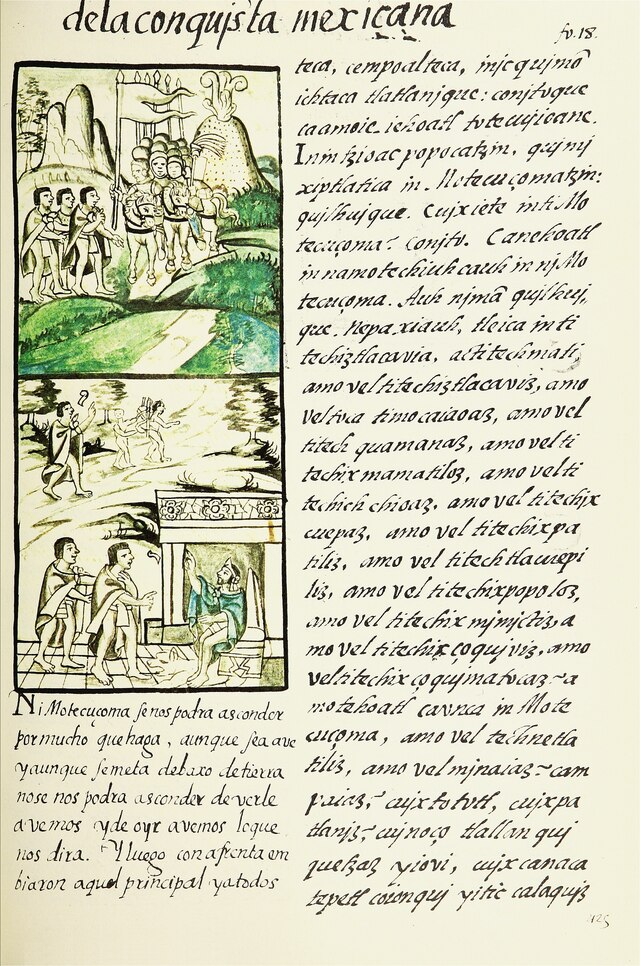 dela conquista mexicana
fo. 18.
Ni Motecuçoma se nos podra asconder
por mucho que haga, aunque sea ave
y aunque se meta debaxo de tierra
no se nos podra asconder de verle
avemos y de oyr avemos loque
nos dira. Y luego con afrenta em
biaron aquel principal y atodos
teca, cempoalteca, injc qujmõ
ichtaca tlatlanjque: conjtoque
ca amo ie iehoatl totecujioane.
Inin tzioac popocatzin, qujmj
xiptlatica in Motecuçomatzin:
qujlhujque. Cujx ie te in ti Mo
tecuçoma? conjto. Ca nehoatl
in namotechiuhcauh in nj Mo
tecuçoma. Auh njmã qujlhuj,
que. Nepa xiauh, tleica in ti
techiztlacavia, ac titechmati,
amo vel titechiztlacaviz, amo
vel toca timocaiaoaz, amo vel
titech quamanaz, amo vel ti
techixmamatiloz, amo vel ti
techich chioaz, amo vel titechix
cuepaz, amo vel titechixpa
tiliz, amo vel titechtlacuepi
liz, amo vel titechixpopoloz,
amo vel titechixmjmjctiz, a
mo vel titechixçoqujviz, amo
vel titechixçoqujmatocaz - a
mo tehoatl ca vnca in Mote
cuçoma, amo vel technetla
tiliz, amo vel mjnaiaz - cam
paiaz, cujx tototl, cujx pa
tlanjz, cujnoço tlallan quj
quetzaz yiovi, cujx canaca
tepetl coionquj yitic calaqujz